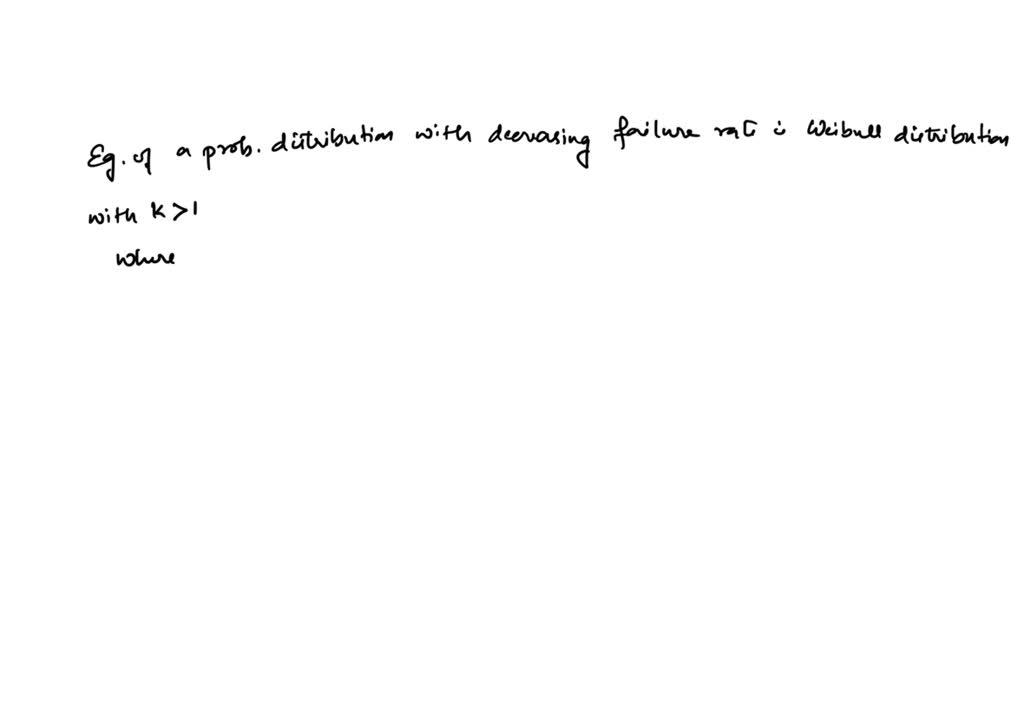 Eg. of a prob. distribution with decreasing failure rate is Weibull distribution
with k > 1
where